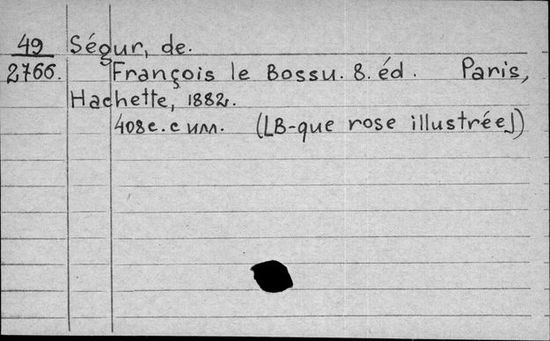 49 Ségur, de.
2766. François le Bossu. 8. éd. Paris,
Hachette, 1882.
408 с. с илл. ([B-que rose illustrée])